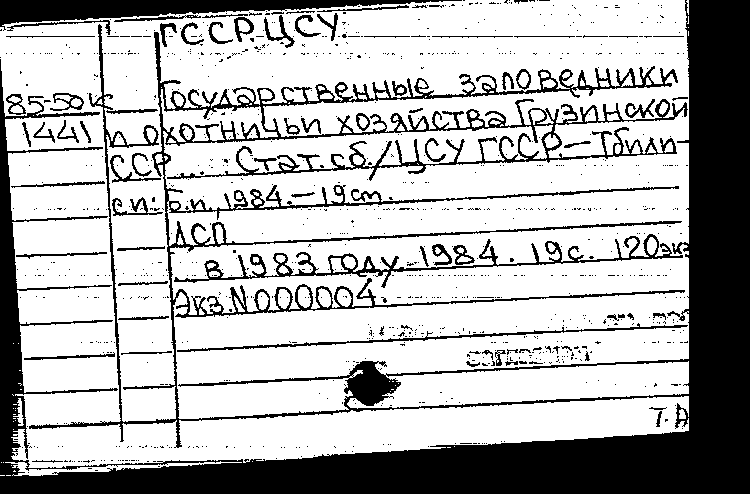 ГССР. ЦСУ.
85-50к
1441
Государственные заповедники
и охотничьи хозяйства Грузинской
ССР ... : Стат. сб./ЦСУ ГССР.—Тбили-
си: б.и., 1984.—19 см.
ДСП.
... в 1983 году. 1984. 19 с. 120 экз
Экз. N 000004.
Т. А